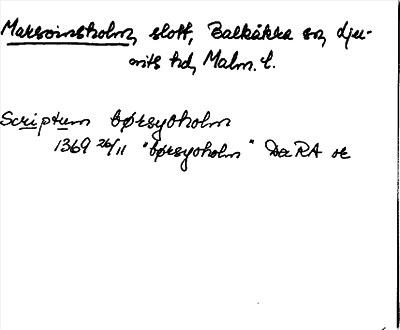 Marsvinsholm, slott, Balkåkra sn, Lju-
nits hd, Malm. l.
Scriptum børsyoholm
1369 26/11 "børsyoholm" DaRA or